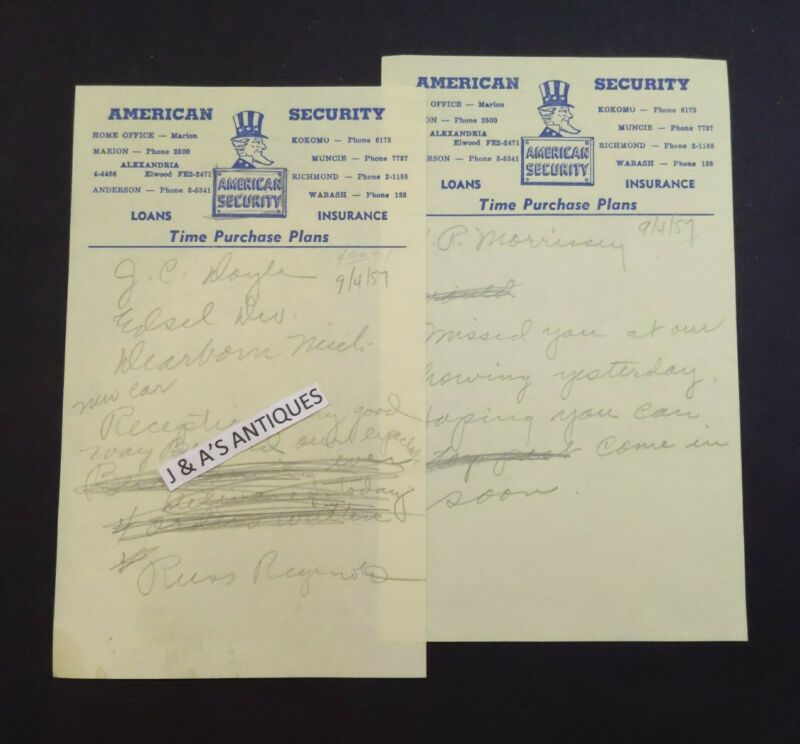 AMERICAN SECURITY
HOME OFFICE — Marion
MARION — Phone 2500
ALEXANDRIA
4-4486 Elwood FE2-2471
ANDERSON — Phone 3-5341
KOKOMO — Phone 6173
MUNCIE — Phone 7737
RICHMOND — Phone 2-1188
WABASH — Phone 188
AMERICAN
SECURITY
LOANS INSURANCE
Time Purchase Plans
9/4/57
J. C. Doyle
Edsel Div.
Dearborn Mich.
new car
Reception very good
way our
ever
today
4 orders written
Russ Reynolds
J & A'S ANTIQUES
AMERICAN SECURITY
OFFICE — Marion
ON — Phone 2500
ALEXANDRIA
Elwood FE2-2471
ERSON — Phone 3-5341
KOKOMO — Phone 6173
MUNCIE — Phone 7737
RICHMOND — Phone 2-1188
WABASH — Phone 188
AMERICAN
SECURITY
LOANS INSURANCE
Time Purchase Plans
P. Morrissey 9/4/57
would
Missed you at our
howing yesterday.
oping you can
come in
soon.